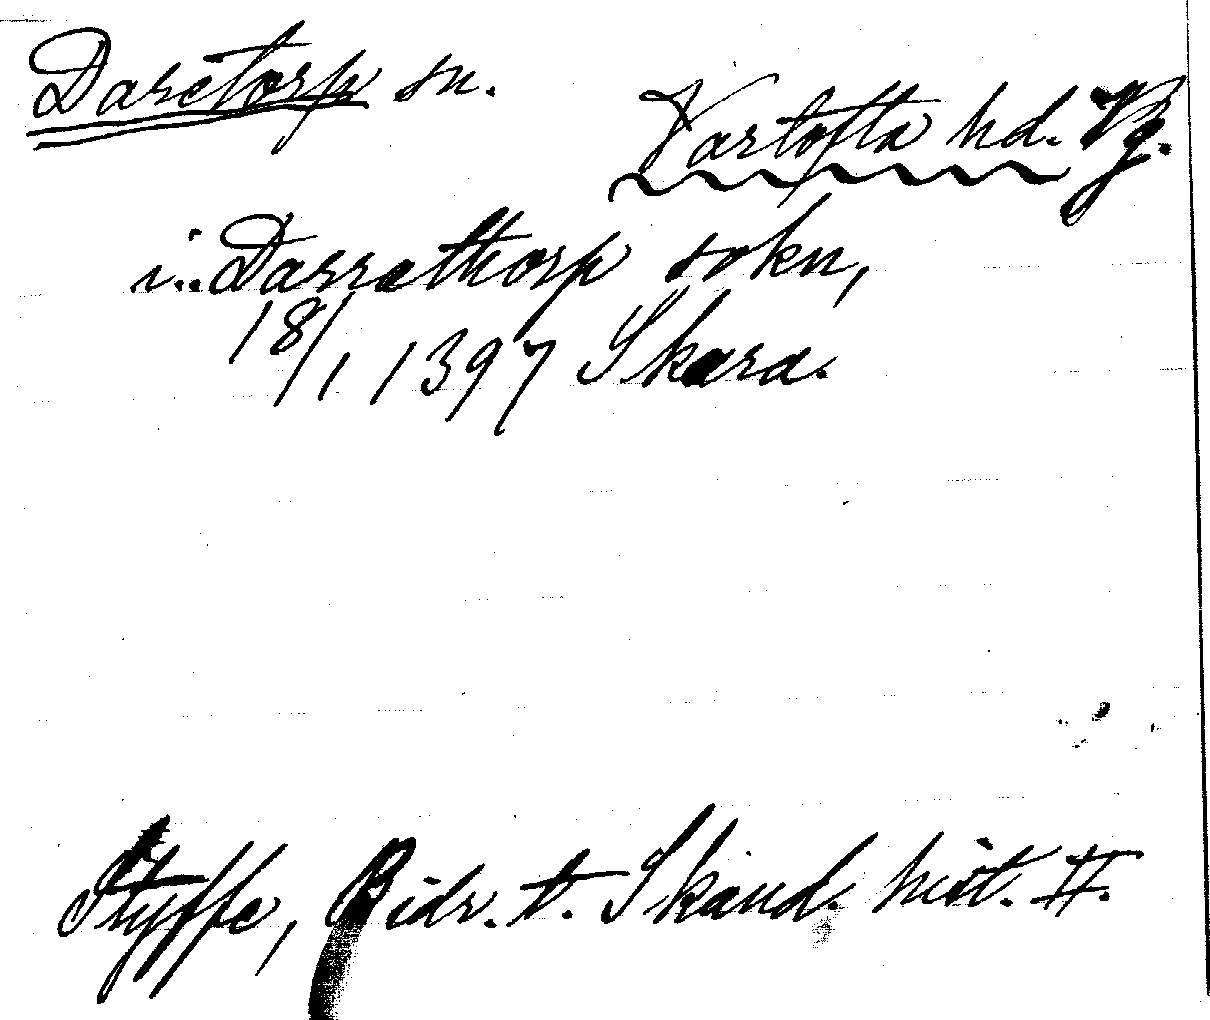 Daretorp sn.
Vartofta hd. Vg.
i... Darrathorp sokn,
18/1 1397 Skara.
Styffe, Bidr. t. Skand. hist. II.